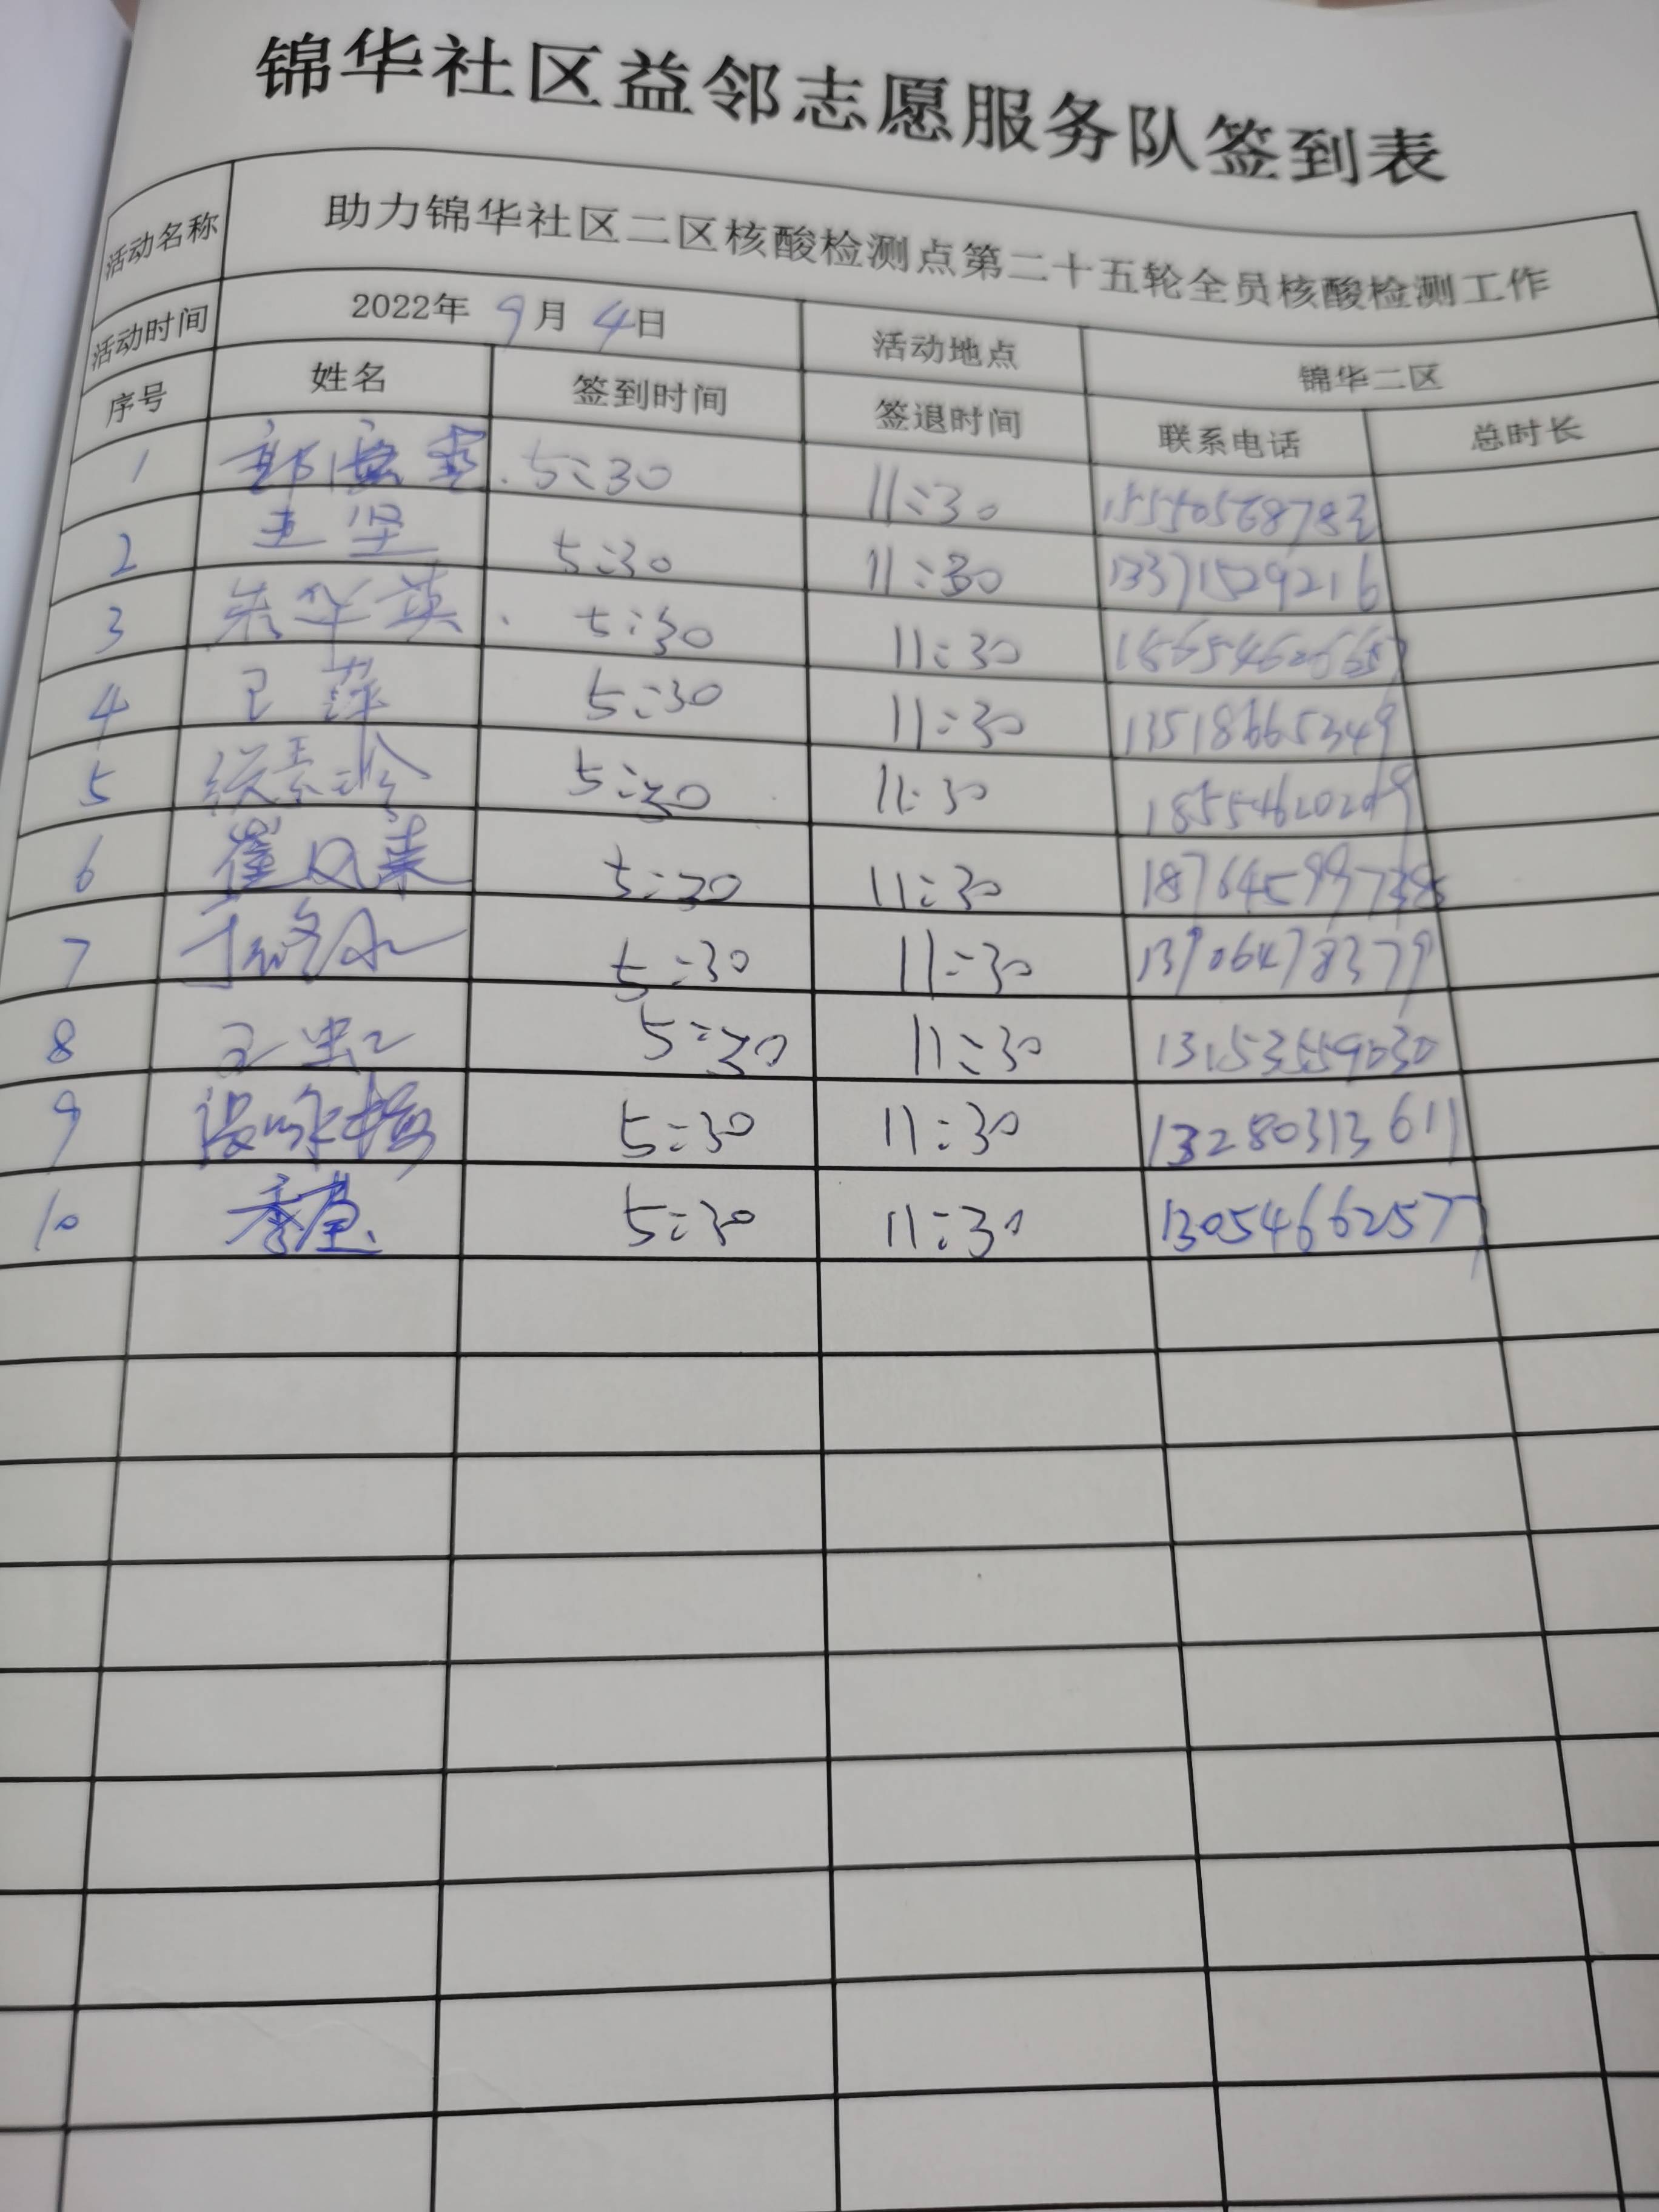 锦华社区益邻志愿服务队签到表
活动名称 助力锦华社区二区核酸检测点第二十五轮全员核酸检测工作
活动时间 2022年 9月 4日 活动地点 锦华二区
序号 姓名 签到时间 签退时间 联系电话 总时长
1 5:30 11:30
2 王坚 5:30 11:30 13371529216
3 朱华英 5:30 11:30
4 王萍 5:30 11:30 13518665349
5 5:30 11:30
6 崔风来 5:30 11:30
7 5:30 11:30 13906478379
8 5:30 11:30
9 5:30 11:30 13280313611
10 5:30 11:30 13054662577